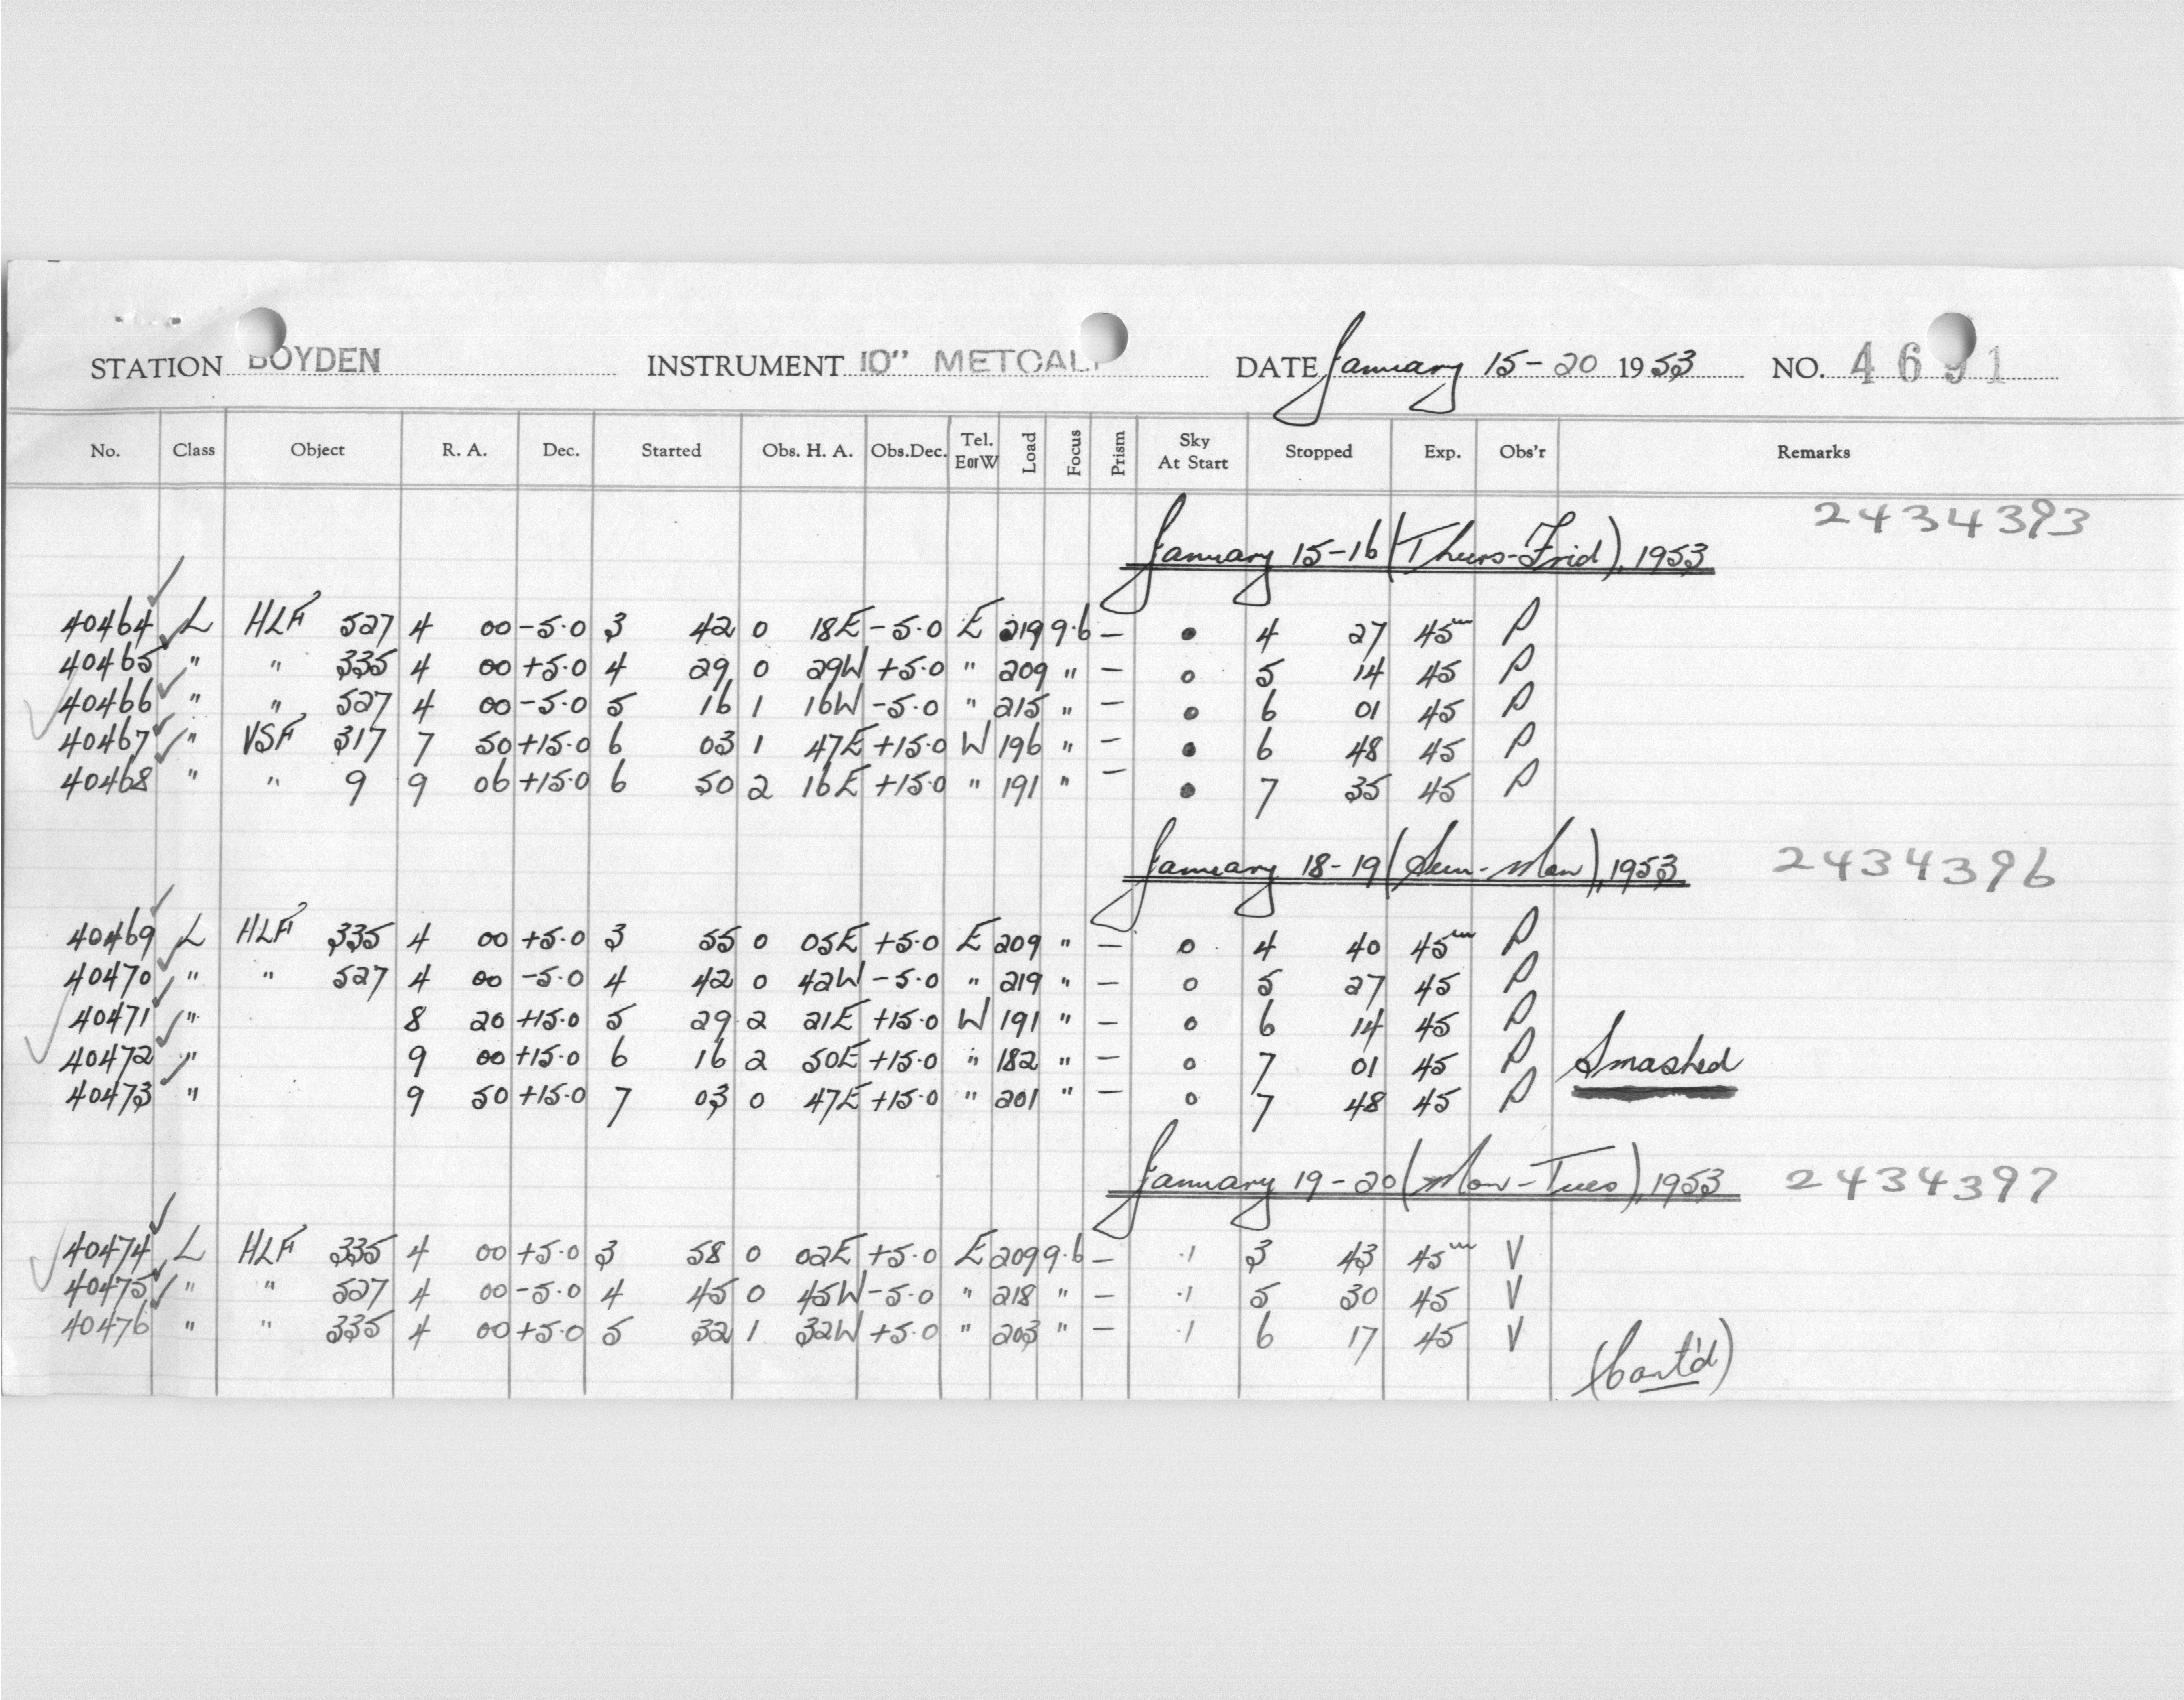 STATION BOYDEN INSTRUMENT 10" METCALF DATE January 15-20 1953 NO. 4691
No. Class Object R. A. Dec. Started Obs. H. A. Obs.Dec. Tel. E or W Load Focus Prism Sky At Start Stopped Exp. Obs'r Remarks
2434393
January 15-16 (Thurs-Frid), 1953
40464 L HLF 527 4 00 -5.0 3 42 0 18E -5.0 E 219 9.6 — • 4 27 45m P
40465 " " 335 4 00 +5.0 4 29 0 29W +5.0 " 209 " — o 5 14 45 P
40466 " " 527 4 00 -5.0 5 16 1 16W -5.0 " 215 " — • 6 01 45 P
40467 " VSF 317 7 50 +15.0 6 03 1 47E +15.0 W 196 " — • 6 48 45 P
40468 " " 9 9 06 +15.0 6 50 2 16E +15.0 " 191 " — • 7 35 45 P
January 18-19 (Sun-Mon), 1953 2434396
40469 L HLF 335 4 00 +5.0 3 55 0 05E +5.0 E 209 " — o 4 40 45m P
40470 " " 527 4 00 -5.0 4 42 0 42W -5.0 " 219 " — o 5 27 45 P
40471 " 8 20 +15.0 5 29 2 21E +15.0 W 191 " — o 6 14 45 P
40472 " 9 00 +15.0 6 16 2 50E +15.0 " 182 " — o 7 01 45 P Smashed
40473 " 9 50 +15.0 7 03 0 47E +15.0 " 201 " — o 7 48 45 P
January 19-20 (Mon-Tues), 1953 2434397
40474 L HLF 335 4 00 +5.0 3 58 0 02E +5.0 E 209 9.6 — .1 3 43 45m V
40475 " " 527 4 00 -5.0 4 45 0 45W -5.0 " 218 " — .1 5 30 45 V
40476 " " 335 4 00 +5.0 5 32 1 32W +5.0 " 203 " — .1 6 17 45 V
(Cont'd)